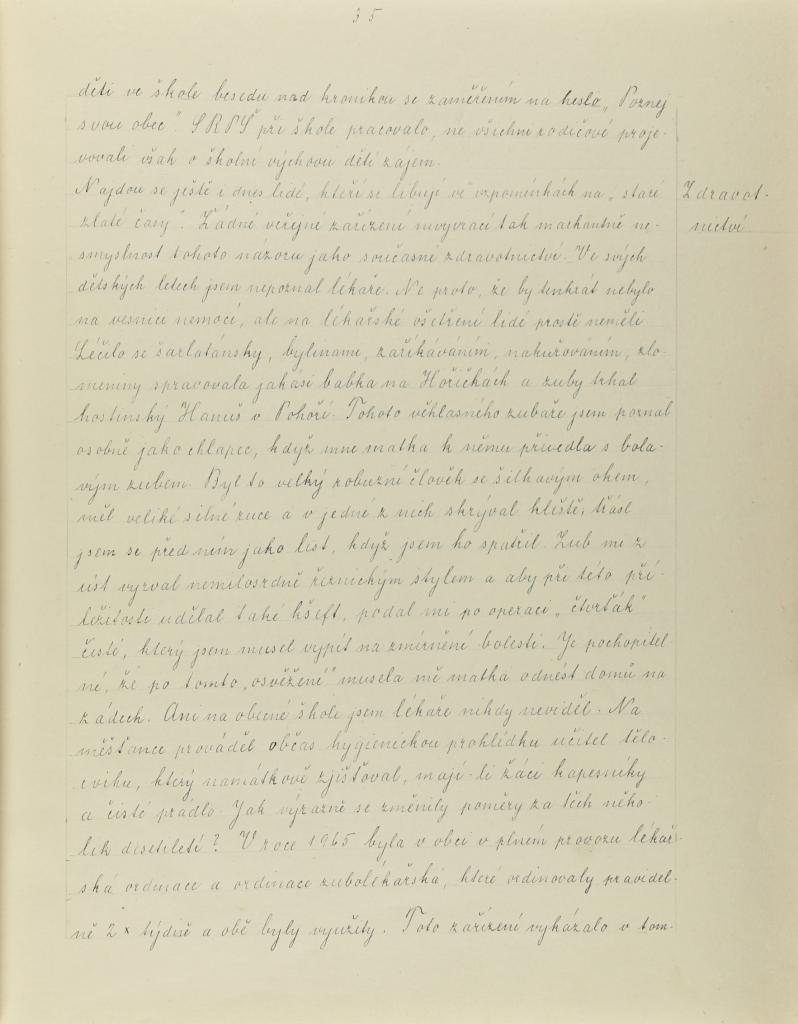 35
děti ve škole besedu nad kronikou se zaměřením na heslo „Poznej
svou obec". SRPŠ při škole pracovalo, ne všichni rodičové proje-
vovali však o školní výchovu dětí zájem.
Najdou se ještě i dnes lidé, kteří si libují ve vzpomínkách na „staré
Zdravot-
zlaté časy". Žádné veřejné zařízení nevyvrací tak markantně ne-
nictví
smyslnost tohoto názoru jako současné zdravotnictví. Ve svých
dětských letech jsem nepoznal lékaře. Ne proto, že by tenkrát nebylo
na vesnici nemocí, ale na lékařské ošetření lidé prostě neměli.
Léčilo se šarlatánsky, bylinami, zaříkáváním, nakuřováním, zlo-
meniny spracovala jakási babka na Hořičkách a zuby trhal
hostinský Hanuš v Pohoří. Tohoto věhlasného zubaře jsem poznal
osobně jako chlapec, když mne matka k němu přivedla s bola-
vým zubem. Byl to velký robuzní člověk se šilhavým okem,
měl veliké silné ruce a v jedné z nich skrýval kleště; třásl
jsem se před ním jako list, když jsem ho spatřil. Zub mi z
úst vyrval nemilosrdně řeznickým stylem a aby při této pří-
ležitosti udělal také kšeft, podal mi po operaci „čtvrťák"
čisté, který jsem musel vypít na zmírnění bolesti. Je pochopitel-
né, že po tomto „osvěžení" musela mě matka odnést domů na
zádech. Ani na obecné škole jsem lékaře nikdy neviděl. Na
měšťance prováděl občas hygienickou prohlídku učitel tělo-
cviku, který namátkově zjišťoval, mají-li žáci kapesníky
a čisté prádlo. Jak výrazně se změnily poměry za těch něko-
lik desetiletí? V roce 1965 byla v obci v plném provozu lékař-
ská ordinace a ordinace zubolékařská, které ordinovaly pravidel-
ně 2x týdně a obě byly využity. Toto zařízení vykázalo v tom-